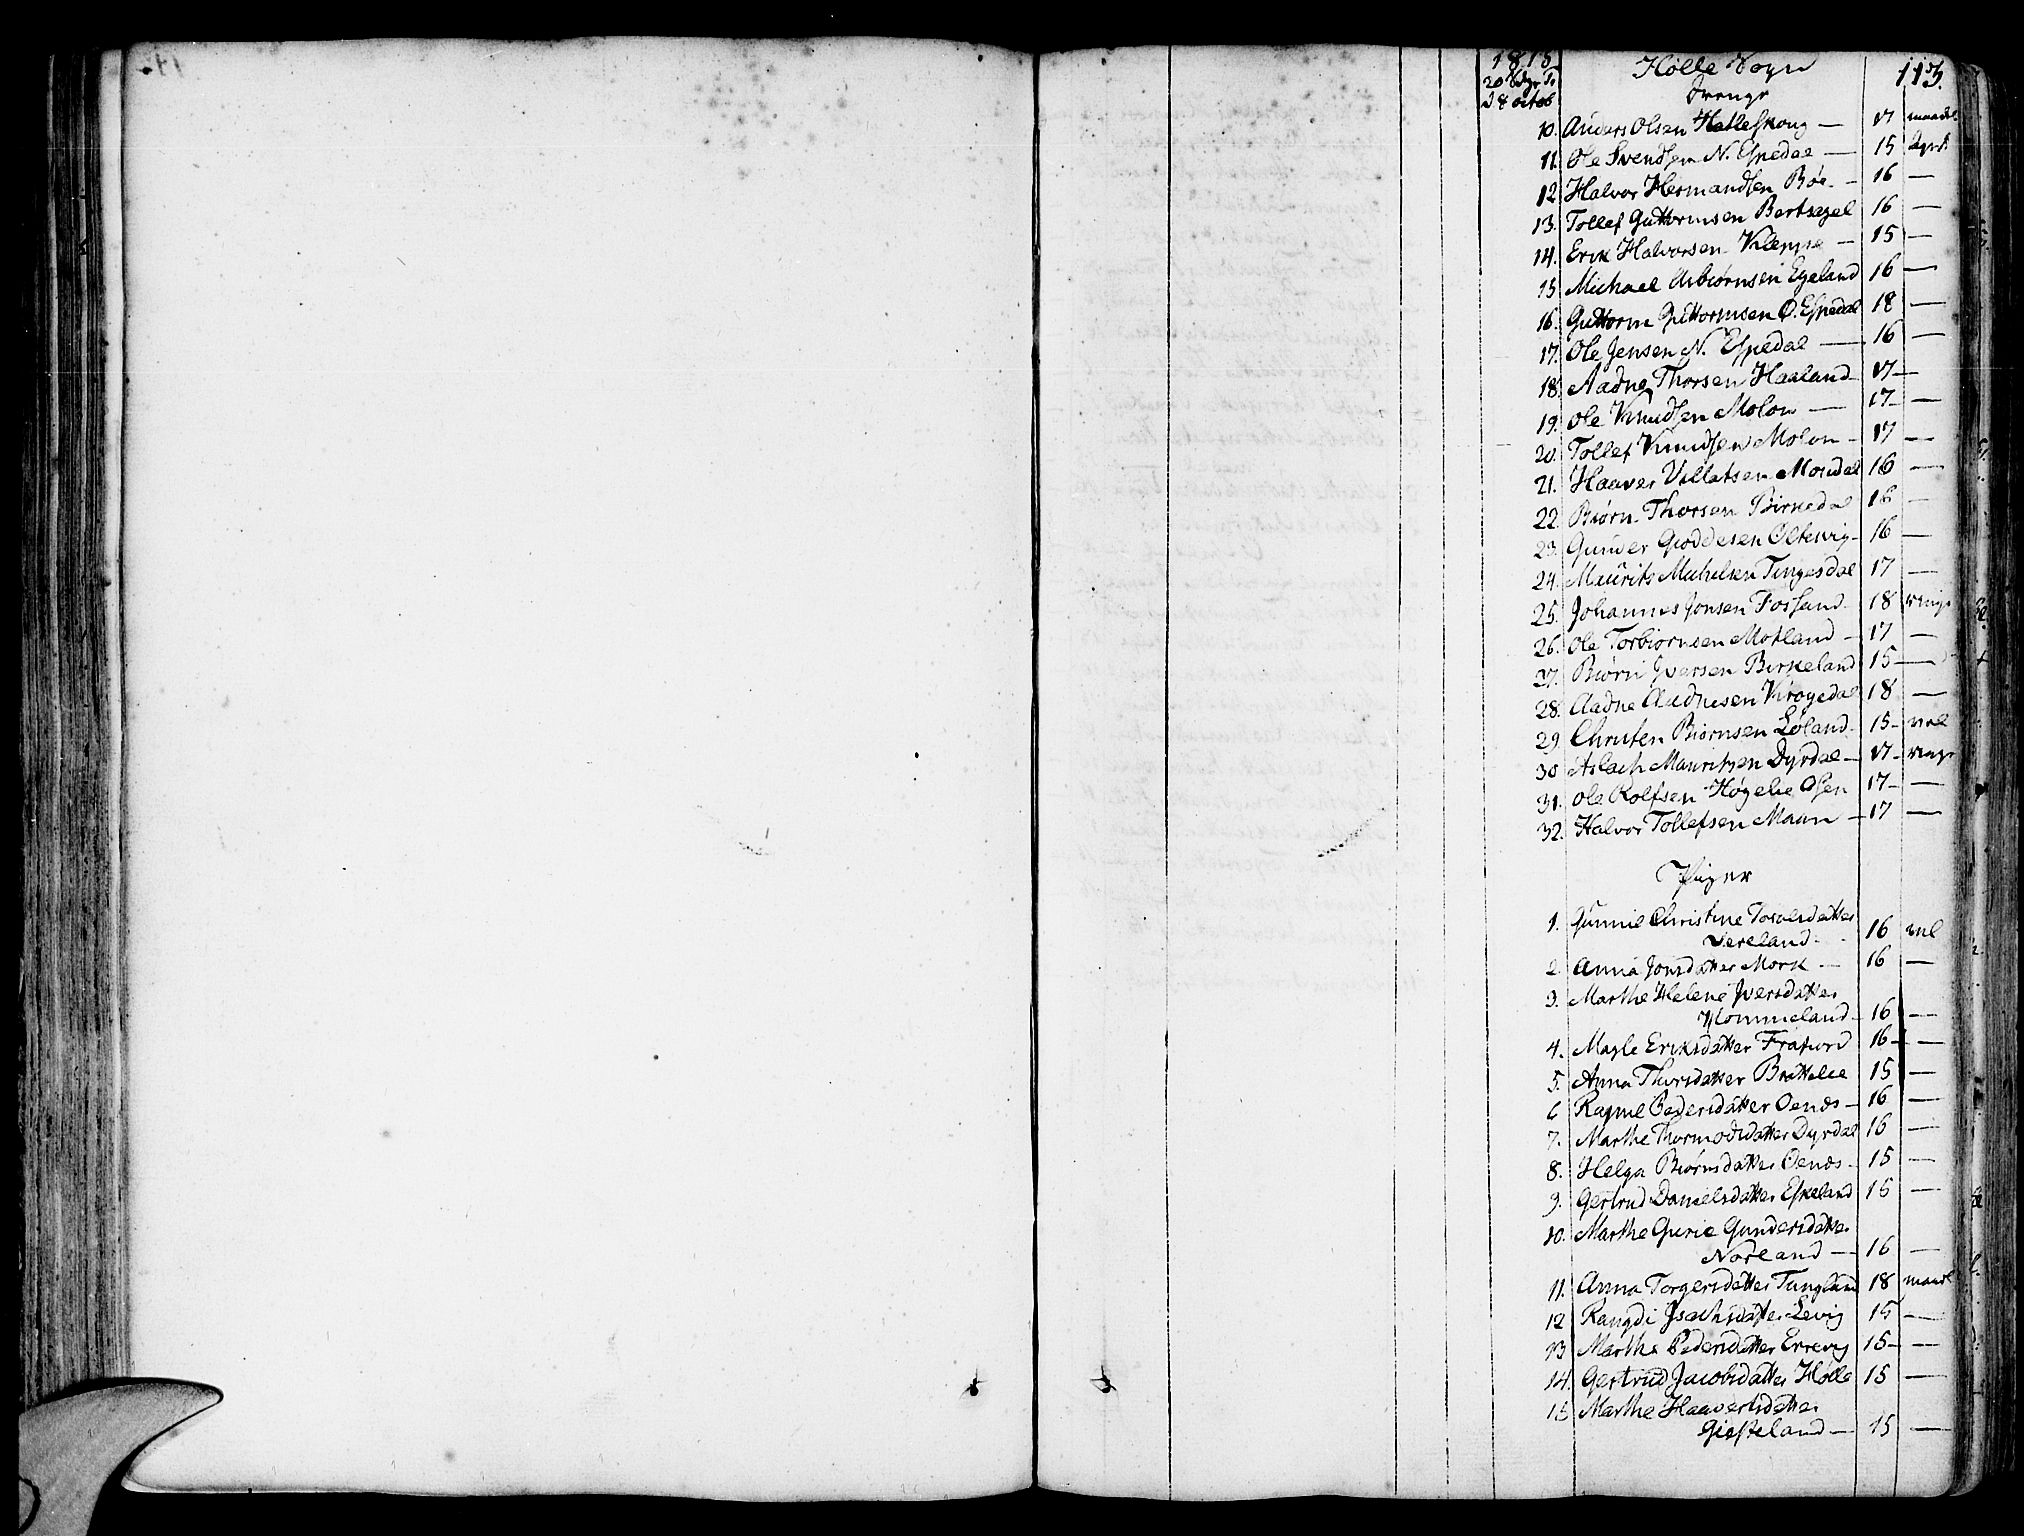 1815
Hölle Sogn
113.
Drenge
28 octob
10. Anders Olsen Helleskoug — 17 maadel
11. Ole Svendsen N. Espedal — 15
12 Halvor Hermandsen Böe — 16 —
13. Tollef Guttormsen Bertsagel 16 —
14. Erik Halvorsen Kleppe — 15 —
15 Michael Asbiörnsen Egeland 16 —
16. Guttorm Guttormsen Ö. Espedal 18 —
17. Ole Jensen N. Espedal — 16 —
18. Aadne Thorsen Haaland — 17 —
19. Ole Knudsen Molou — 17 —
20. Tollef Knudsen Molou — 17 —
21. Haaver Villatsen Mondal 16 —
22. Biörn Thorsen Birkedal 16 —
23. Gunder Goddesen Oltesvig — 16 —
24. Maurits Michelsen Tingesdal 17 —
25. Johannes Jonsen Fossand 18 ringe
26. Ole Torbiörnsen Motland — 17 —
27. Biörn Iversen Birkeland 15 —
28. Aadne Aadnesen Krogedal 18 —
29. Christen Biörnsen Löland 15 — vel
30 Aslach Mauritzen Dyrdal — 17 — ringe
31. Ole Rolfsen Högelie Osen 17 —
32. Halvor Tollefsen Maan — 17 —
Piger
1. Gunnil Christine Torvelsdatter
Vereland 16 vel
2. Anna Jonsdatter Mork — 16 —
3. Marthe Helene Iversdatter
Hommeland — 16 —
4. Magle Eriksdatter Frafiord 16 —
5. Anna Thorsdatter Brattelie 15 —
6 Ragnil Pedersdatter Oenæs — 16 —
7. Marthe Thormodsdatter Dyrdal 16 —
8. Helga Biörnsdatter Oenæs — 15 —
9. Gertrud Danielsdatter Eskeland 15 —
10. Marthe Gurie Gundersdatter
Norland — 16 —
11. Anna Torgersdatter Tungland 18 maadl
12 Rangdi Isachsdatter Levig 15 —
13 Marthe Pedersdatter Errevig 15 —
14. Gertrud Jacobsdatter Hölle 15 —
15 Marthe Haaversdatter
Giesteland — 15 —